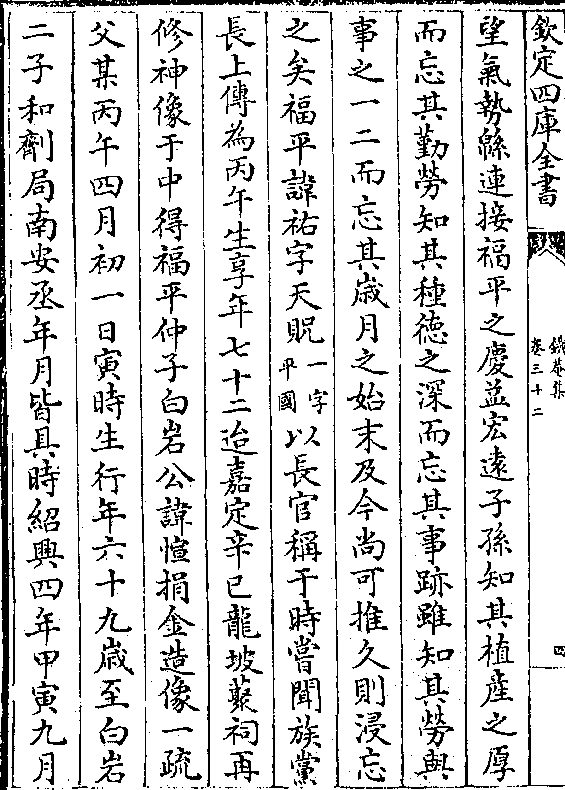 欽定四庫全書
鐵菴集
卷三十二
四
望氣勢緜連接福平之慶益宏逺子孫知其植産之厚
而忘其勤勞知其種徳之深而忘其事跡雖知其勞與
事之一二而忘其嵗月之始末及今尚可推久則浸忘
之矣福平諱祐字天貺一字平國以長官稱于時嘗聞族黨
長上傳為丙午生享年七十二迨嘉定辛巳龍坡藂祠再
修神像于中得福平仲子白岩公諱愃捐金造像一疏
父某丙午四月初一日寅時生行年六十九嵗至白岩
二子和劑局南安丞年月皆具時紹興四年甲寅九月